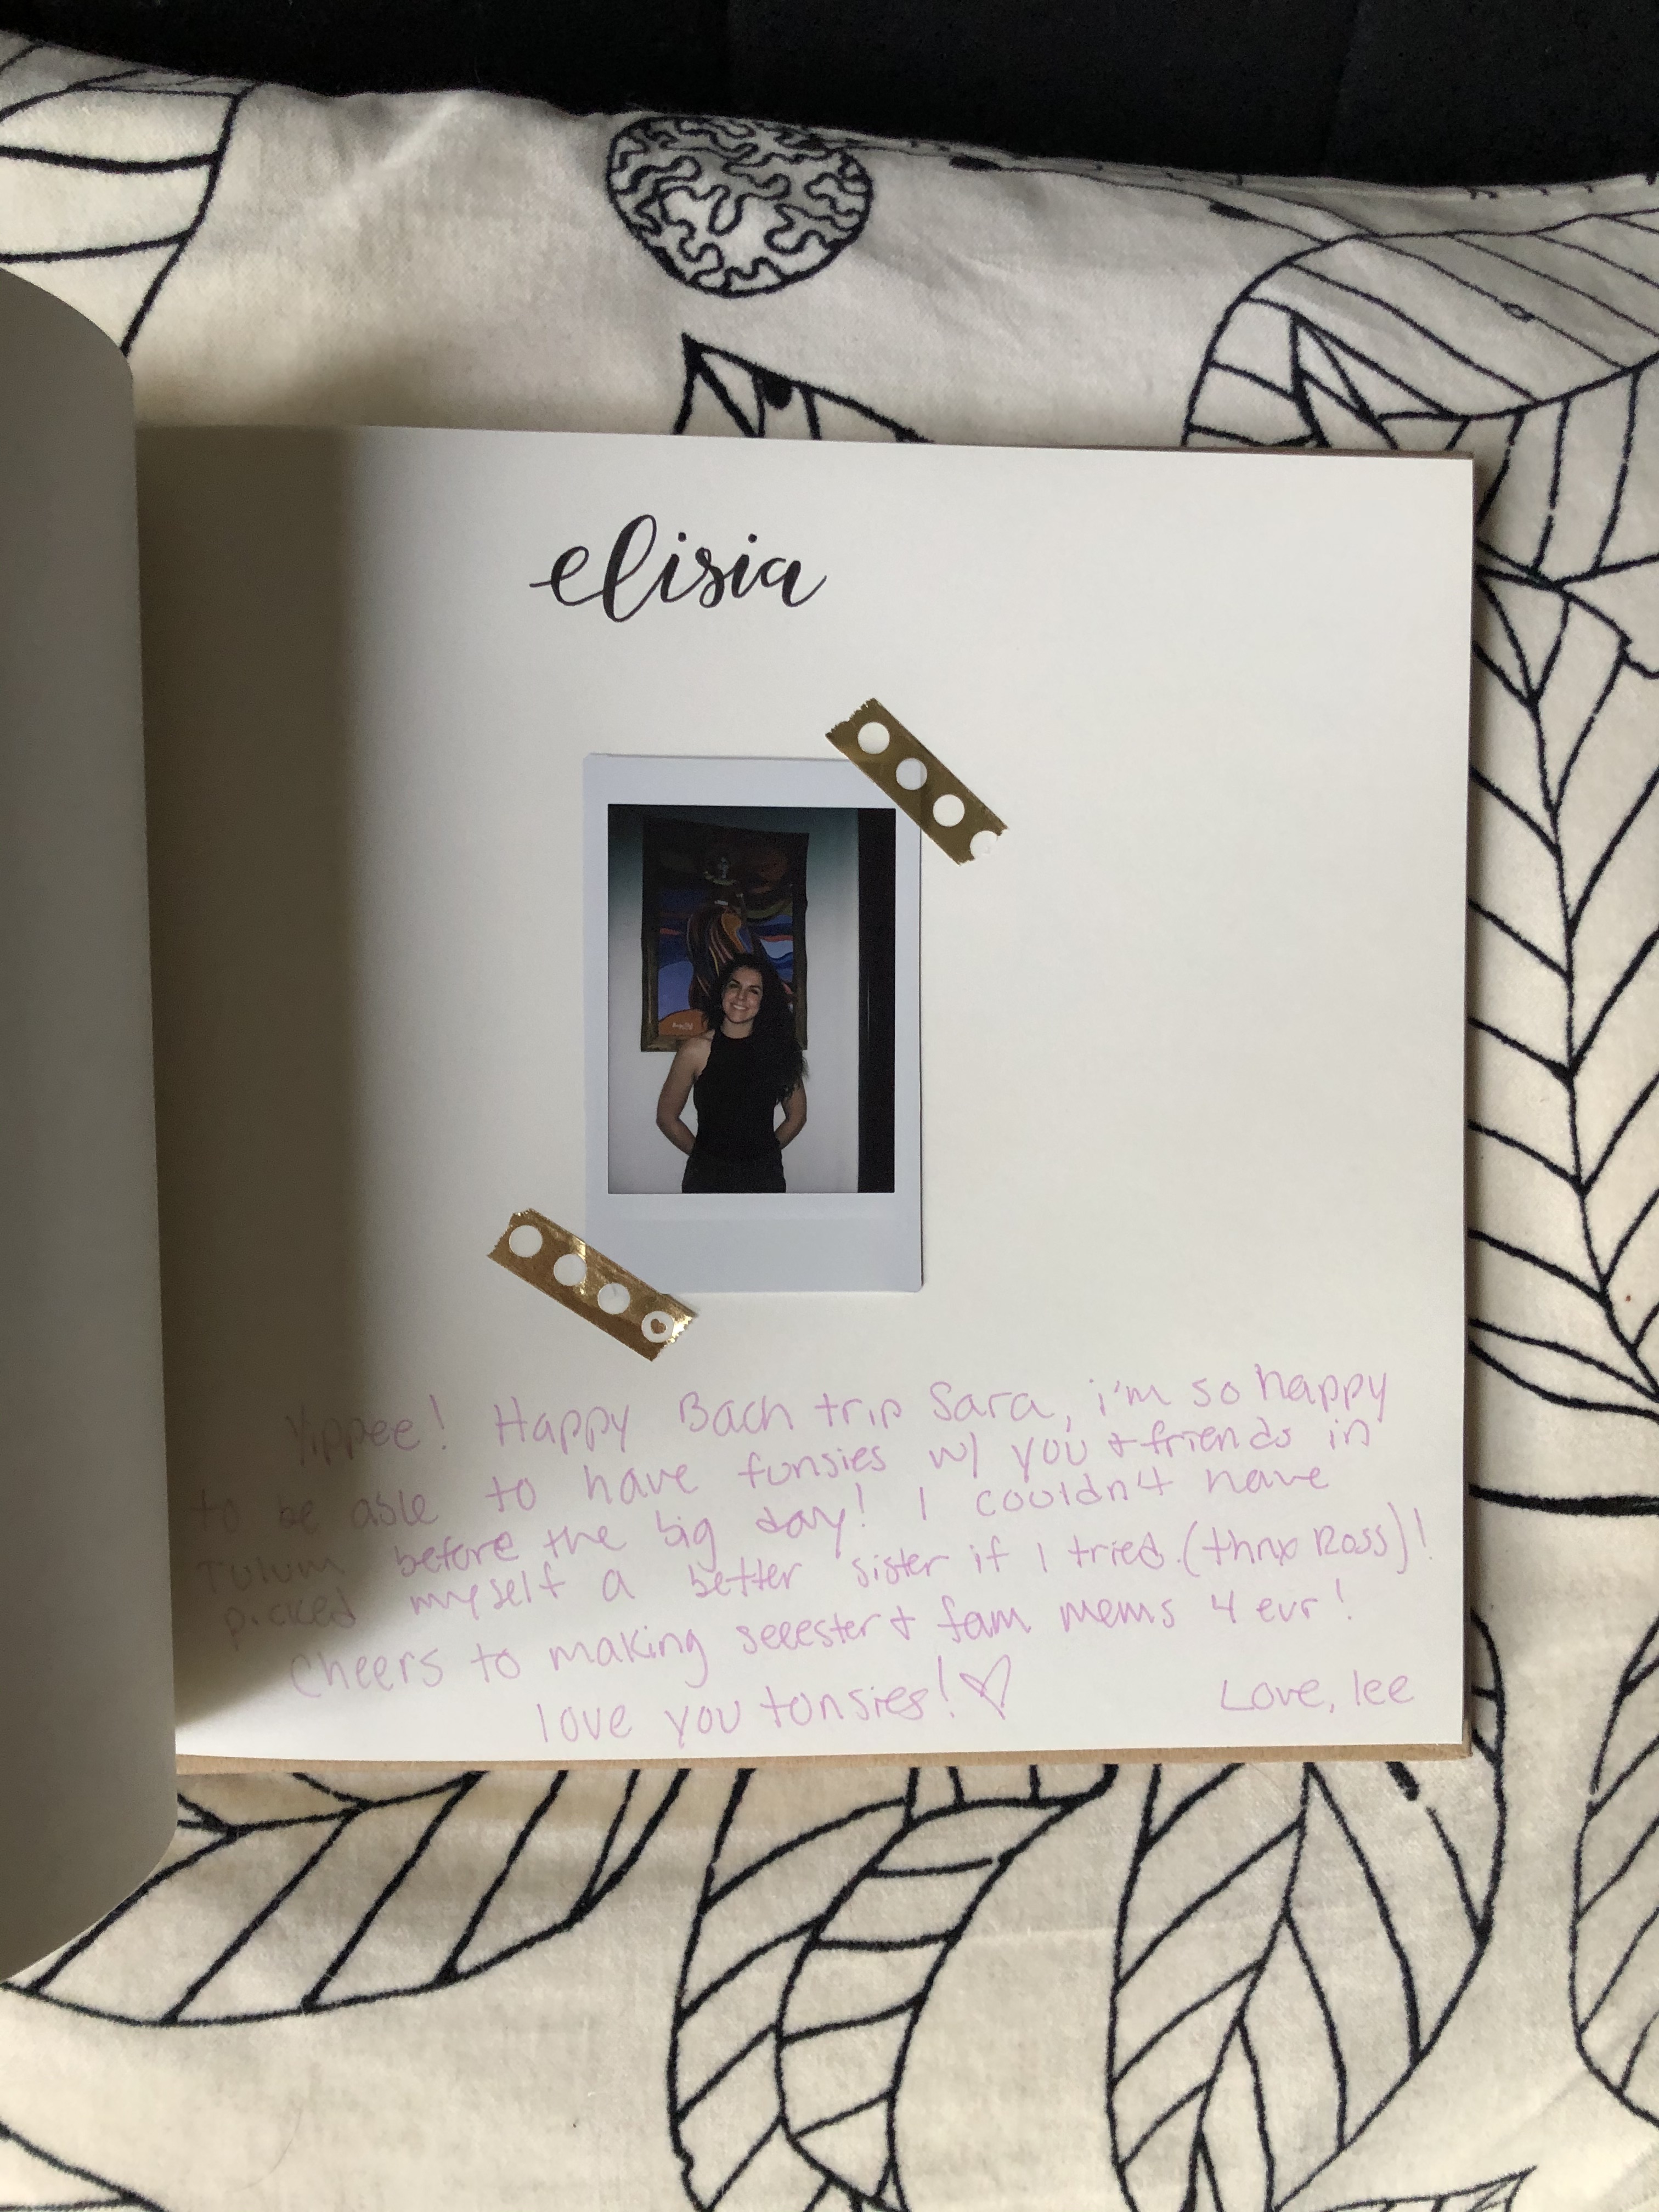 elisia
Yippee! Happy Bach trip Sara, i'm so happy
to be able to have funsies w/ you + friends in
Tulum before the big day! I couldn't have
picked myself a better sister if I tried (thnx Ross)!
Cheers to making seeester + fam mems 4 evr!
love you tonsies! ♡
Love, lee